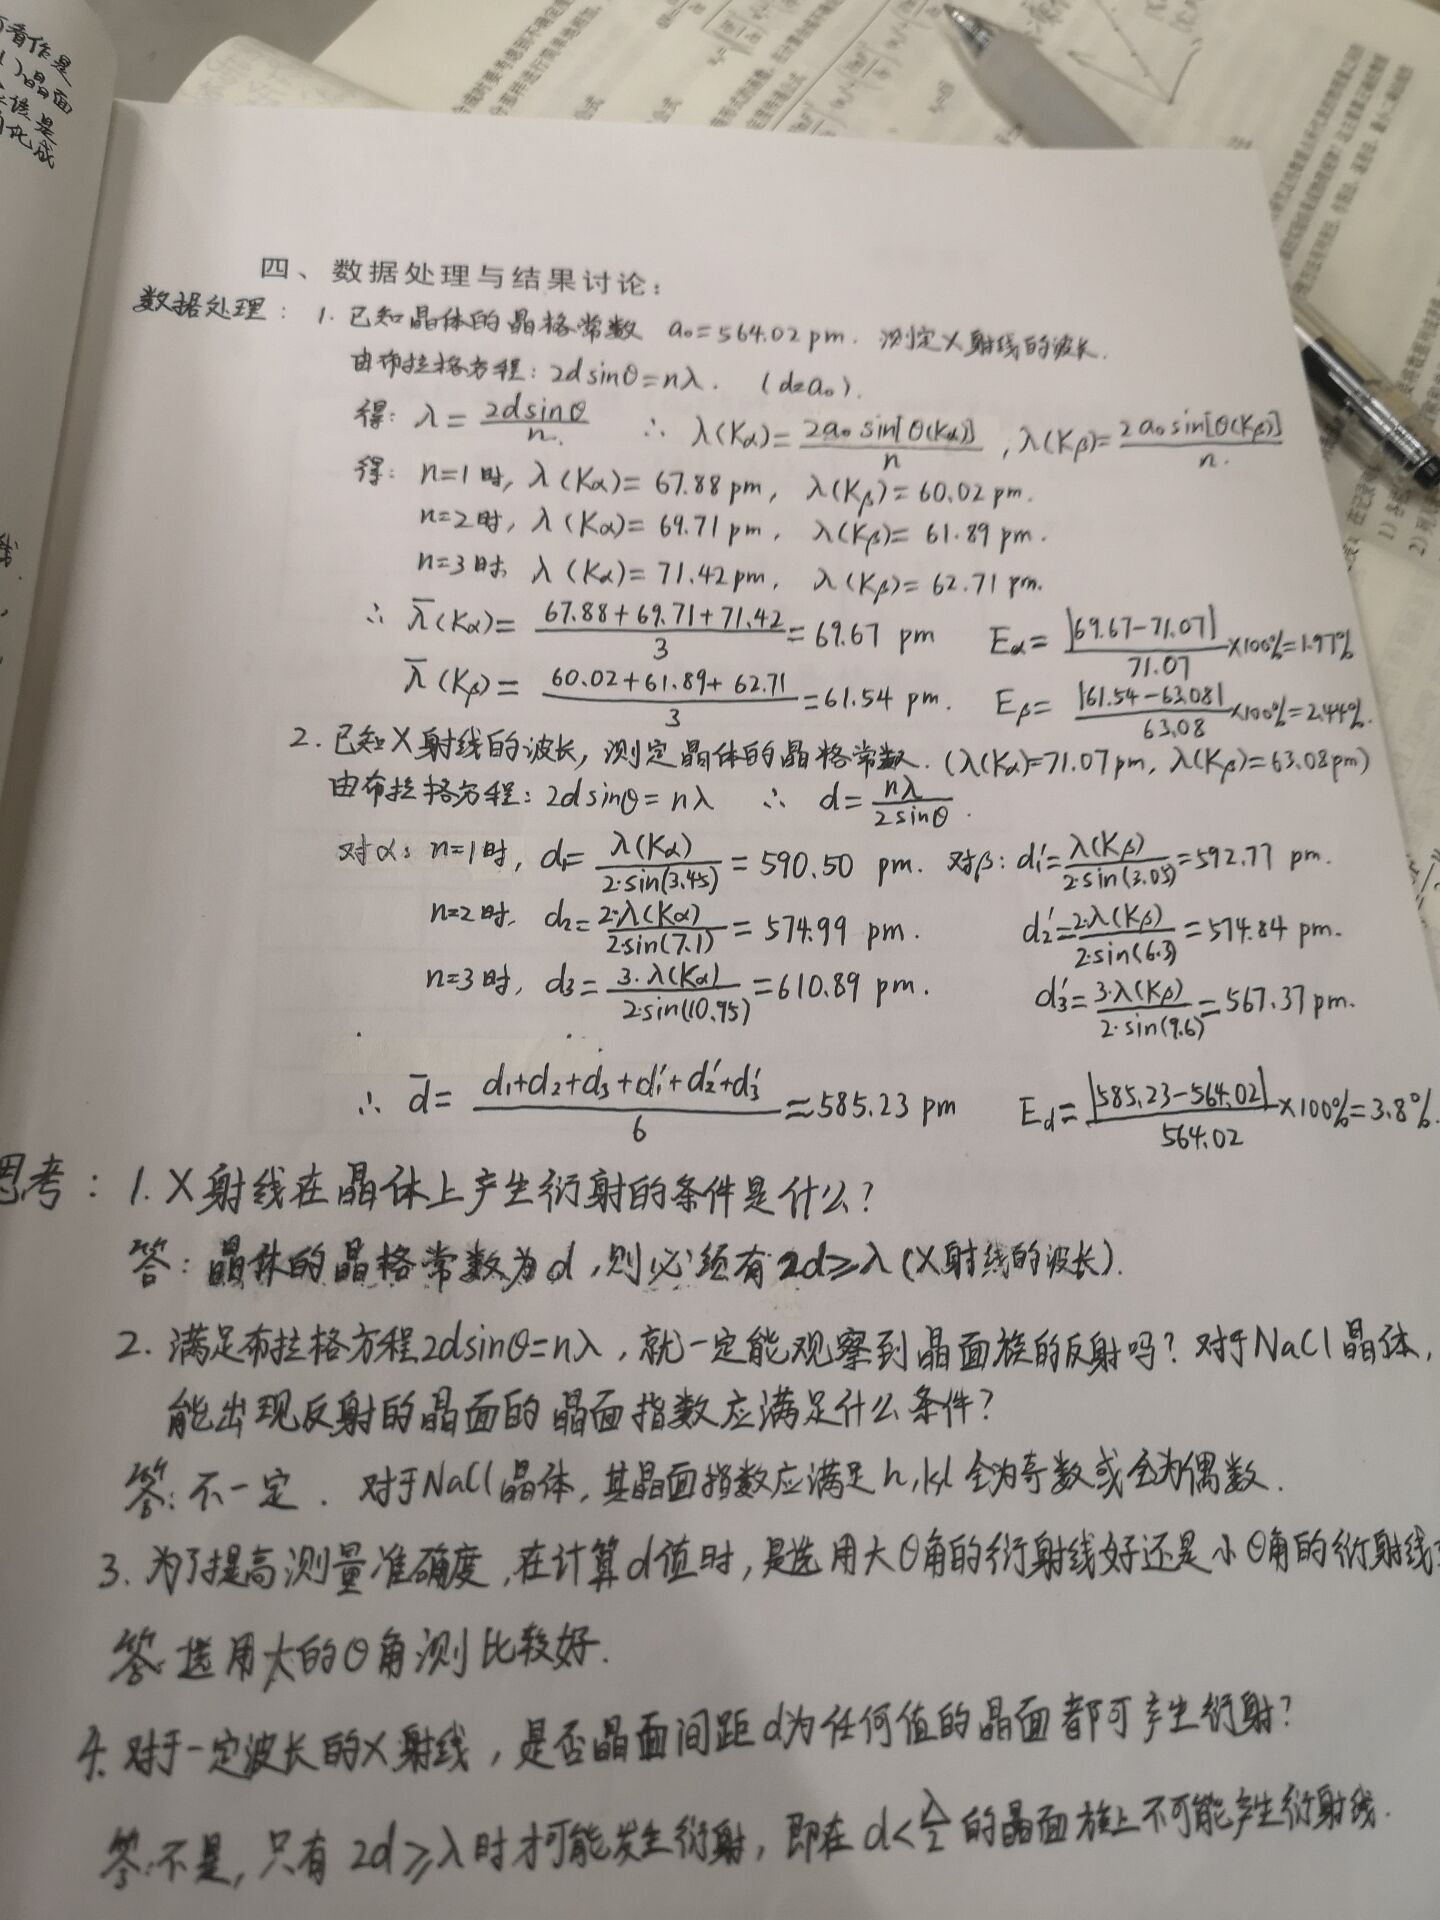 看作是
晶面
四、数据处理与结果讨论：
数据处理： 1. 已知晶体的晶格常数 a₀=564.02pm. 测定X射线的波长.
由布拉格方程：2dsinθ=nλ. (d=a₀).
得：λ=2dsinθ/n. ∴ λ(Kα)=2a₀sin[θ(Kα)]/n , λ(Kβ)=2a₀sin[θ(Kβ)]/n.
得：n=1时, λ(Kα)=67.88pm, λ(Kβ)=60.02pm.
n=2时, λ(Kα)=69.71pm, λ(Kβ)=61.89pm.
n=3时, λ(Kα)=71.42pm, λ(Kβ)=62.71pm.
∴ λ̄(Kα)=(67.88+69.71+71.42)/3=69.67 pm Eα=|69.67-71.07|/71.07×100%=1.97%
λ̄(Kβ)=(60.02+61.89+62.71)/3=61.54 pm. Eβ=|61.54-63.08|/63.08×100%=2.44%.
2. 已知X射线的波长, 测定晶体的晶格常数. (λ(Kα)=71.07pm, λ(Kβ)=63.08pm)
由布拉格方程：2dsinθ=nλ ∴ d=nλ/2sinθ.
对α：n=1时, d₁=λ(Kα)/2·sin(3.45)=590.50 pm. 对β：d₁′=λ(Kβ)/2·sin(3.05)=592.77 pm.
n=2时, d₂=2·λ(Kα)/2·sin(7.1)=574.99 pm. d₂′=2·λ(Kβ)/2·sin(6.3)=574.84 pm.
n=3时, d₃=3·λ(Kα)/2·sin(10.95)=610.89 pm. d₃′=3·λ(Kβ)/2·sin(9.6)=567.37 pm.
∴ d̄=(d₁+d₂+d₃+d₁′+d₂′+d₃′)/6≈585.23 pm Ed=|585.23-564.02|/564.02×100%=3.8%.
思考：1. X射线在晶体上产生衍射的条件是什么?
答：晶体的晶格常数为d, 则必须有2d≥λ(X射线的波长).
2. 满足布拉格方程2dsinθ=nλ, 就一定能观察到晶面族的反射吗? 对于NaCl晶体,
能出现反射的晶面的晶面指数应满足什么条件?
答：不一定. 对于NaCl晶体, 其晶面指数应满足h,k,l全为奇数或全为偶数.
3. 为了提高测量准确度, 在计算d值时, 是选用大θ角的衍射线好还是小θ角的衍射线
答：选用大的θ角测比较好.
4. 对于一定波长的X射线, 是否晶面间距d为任何值的晶面都可产生衍射?
答：不是, 只有2d≥λ时才可能发生衍射, 即在d<λ/2的晶面族上不可能产生衍射线.